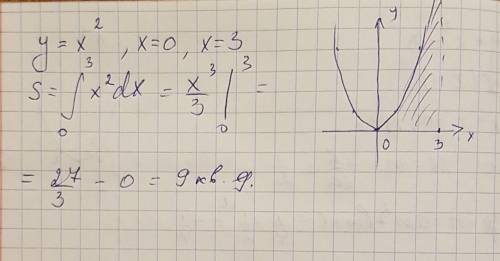 y = x², x=0, x=3
S = ∫₀³ x²dx = x³/3 |₀³ =
= 27/3 - 0 = 9 кв. ед.
y
0 3 x